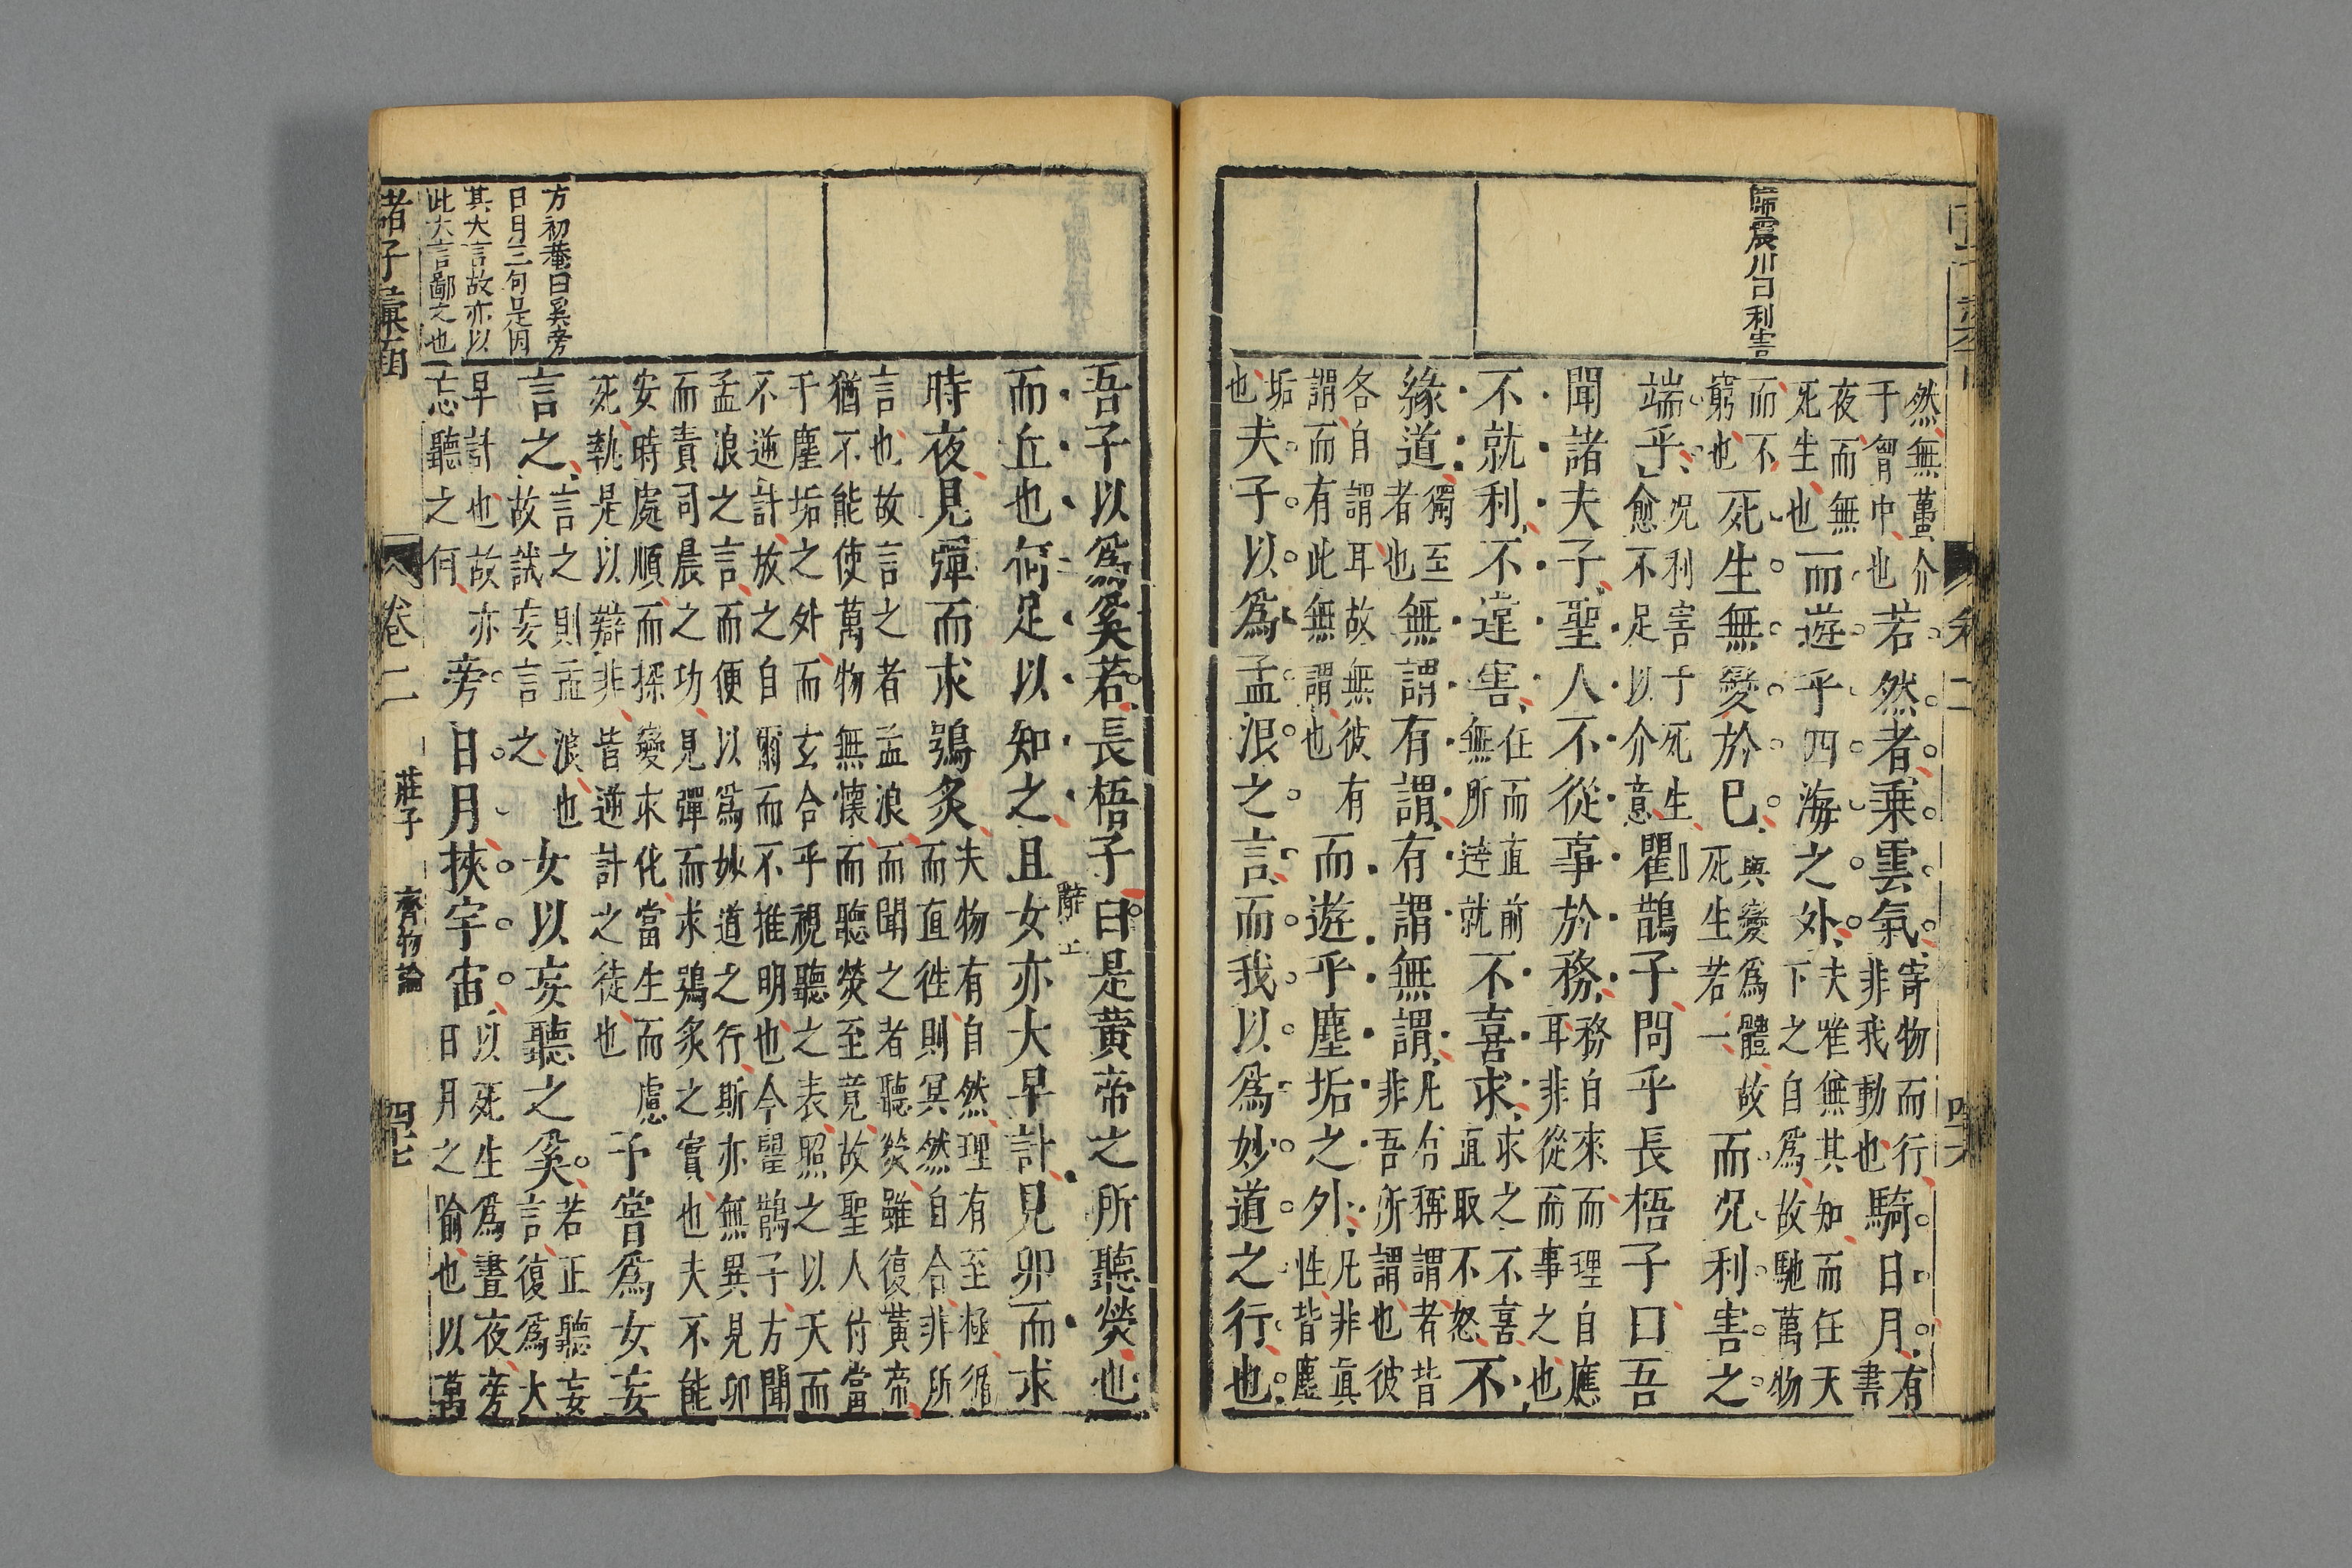 歸震川曰利害
然無蠆介于胷中也若然者乘雲氣寄物而行非我動也騎日月有晝
夜而無死生也而遊乎四海之外夫唯無其知而任天下之自爲故馳萬物
而不窮也死生無變於已與變爲體故死生若一而况利害之
端乎况利害于死生愈不足以介意瞿鵲子問乎長梧子曰吾
聞諸夫子聖人不從事於務務自來而理自應耳非從而事之也
不就利不違害任而直前無所逹就不喜求求之不喜直取不怒不
緣道獨至者也無謂有謂有謂無謂凡有稱謂者皆非吾所謂也彼
各自謂耳故無彼有謂而有此無謂也而遊乎塵垢之外凡非眞性皆塵
垢也夫子以爲孟浪之言而我以爲妙道之行也
吾子以爲奚若長梧子曰是黃帝之所聽熒也
音辭上
而丘也何足以知之且女亦大早計見卵而求
時夜見彈而求鴞炙夫物有自然理有至極循而直徃則冥然自合非所
言也故言之者孟浪而聞之者聽熒雖復黃帝猶不能使萬物無懷而聽熒至竟故聖人付當
于塵垢之外而玄合乎視聽之表照之以天而不逆計放之自爾而不推明也今瞿鵲子方聞
孟浪之言而便以爲妙道之行斯亦無異見卵而責司晨之功見彈而求鴞炙之實也夫不能
安時處順而探變求化當生而慮死執是以辯非皆逆計之徒也予嘗爲女妄
言之言之則孟浪也故試妄言之女以妄聽之奚若正聽妄言復爲大
早計也故亦忘聽之何旁日月挾宇宙以死生爲晝夜旁日月之喻也以萬
方初菴曰奚旁
日月三句是因
其大言故亦以
此大言鄙之也
諸子彙函
卷二
莊子
齊物論
四七